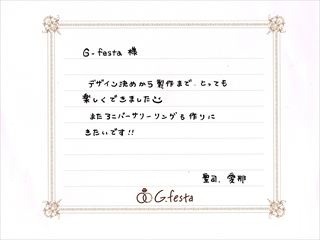 G.festa 様
デザイン決めから製作まで、とっても
楽しくできました
またアニバーサリーリングも作りに
きたいです!!
聖司、愛那
G.festa